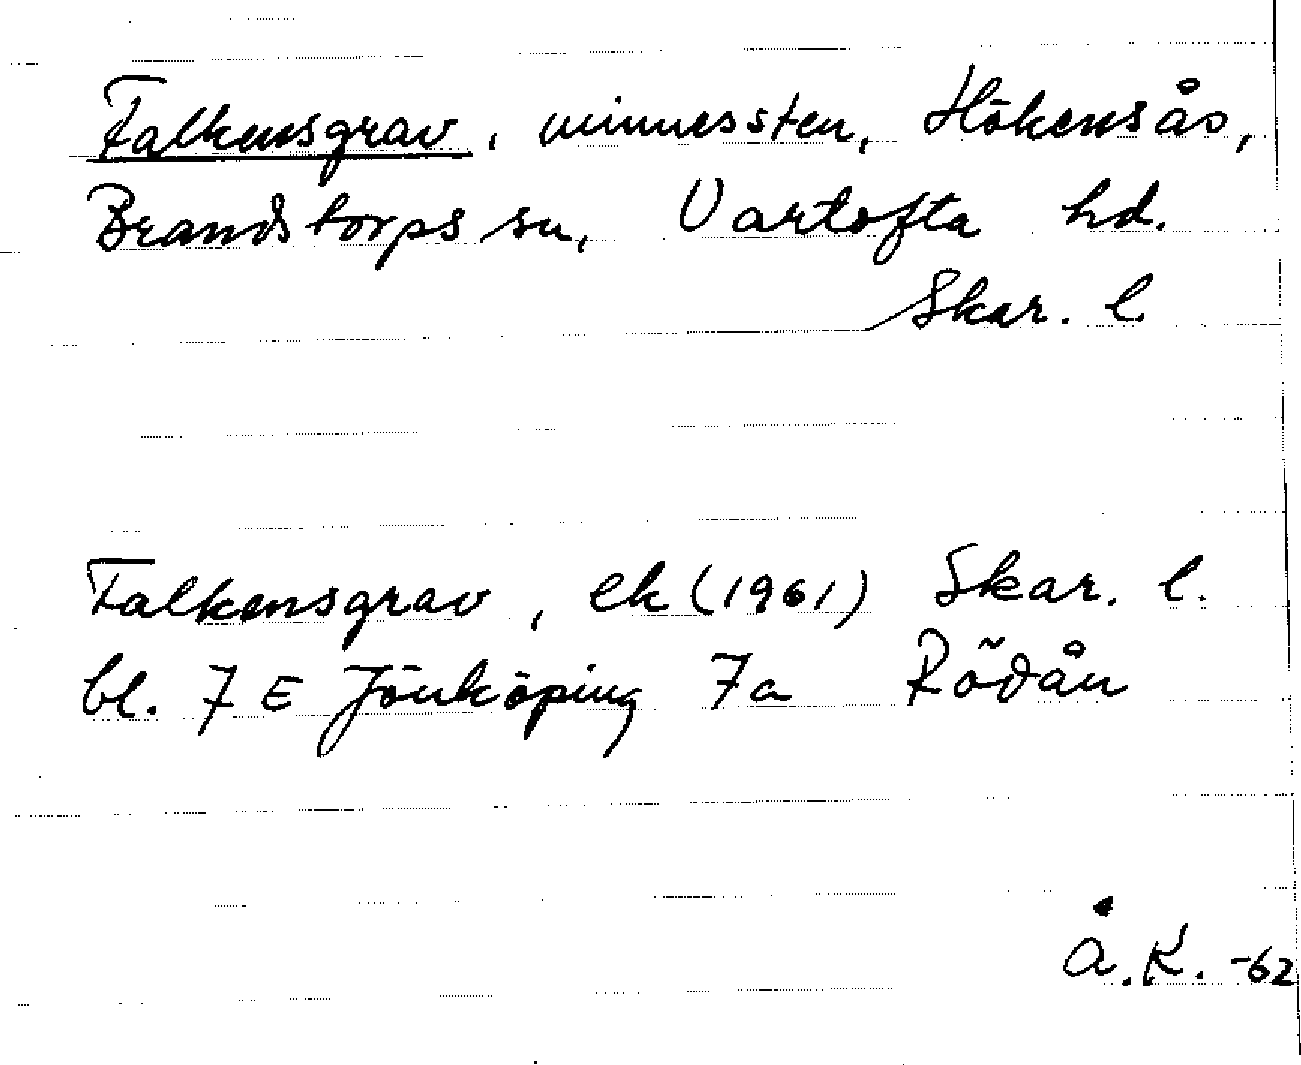 Falkensgrav, minnessten, Hökensås,
Brandstorps sn, Vartofta hd.
Skar. l.
Falkensgrav, ek (1961) Skar. l.
bl. 7 E Jönköping 7a Rödån
Å.K. -62